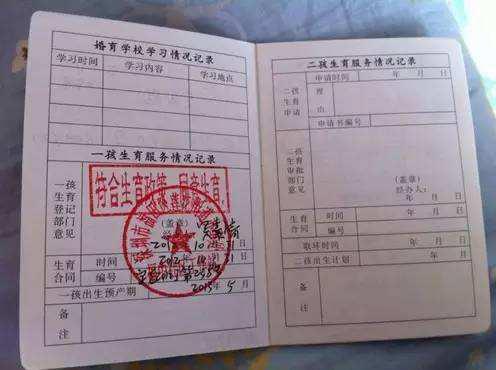 婚育学校学习情况记录
学习时间 学习内容 学习地点
一孩生育服务情况记录
一孩生育登记部门意见
符合生育政策
(盖章)
生育合同
时间
编号
一孩出生预产期 2015年5月
备注
二孩生育服务情况记录
二孩生育申请
申请时间 年 月 日
理由
申请书编号
二孩生育审批部门意见
(盖章)
经办人:
年 月 日
生育合同
时间 年 月 日
编号
取环时间 年 月 日
二孩出生计划
备注